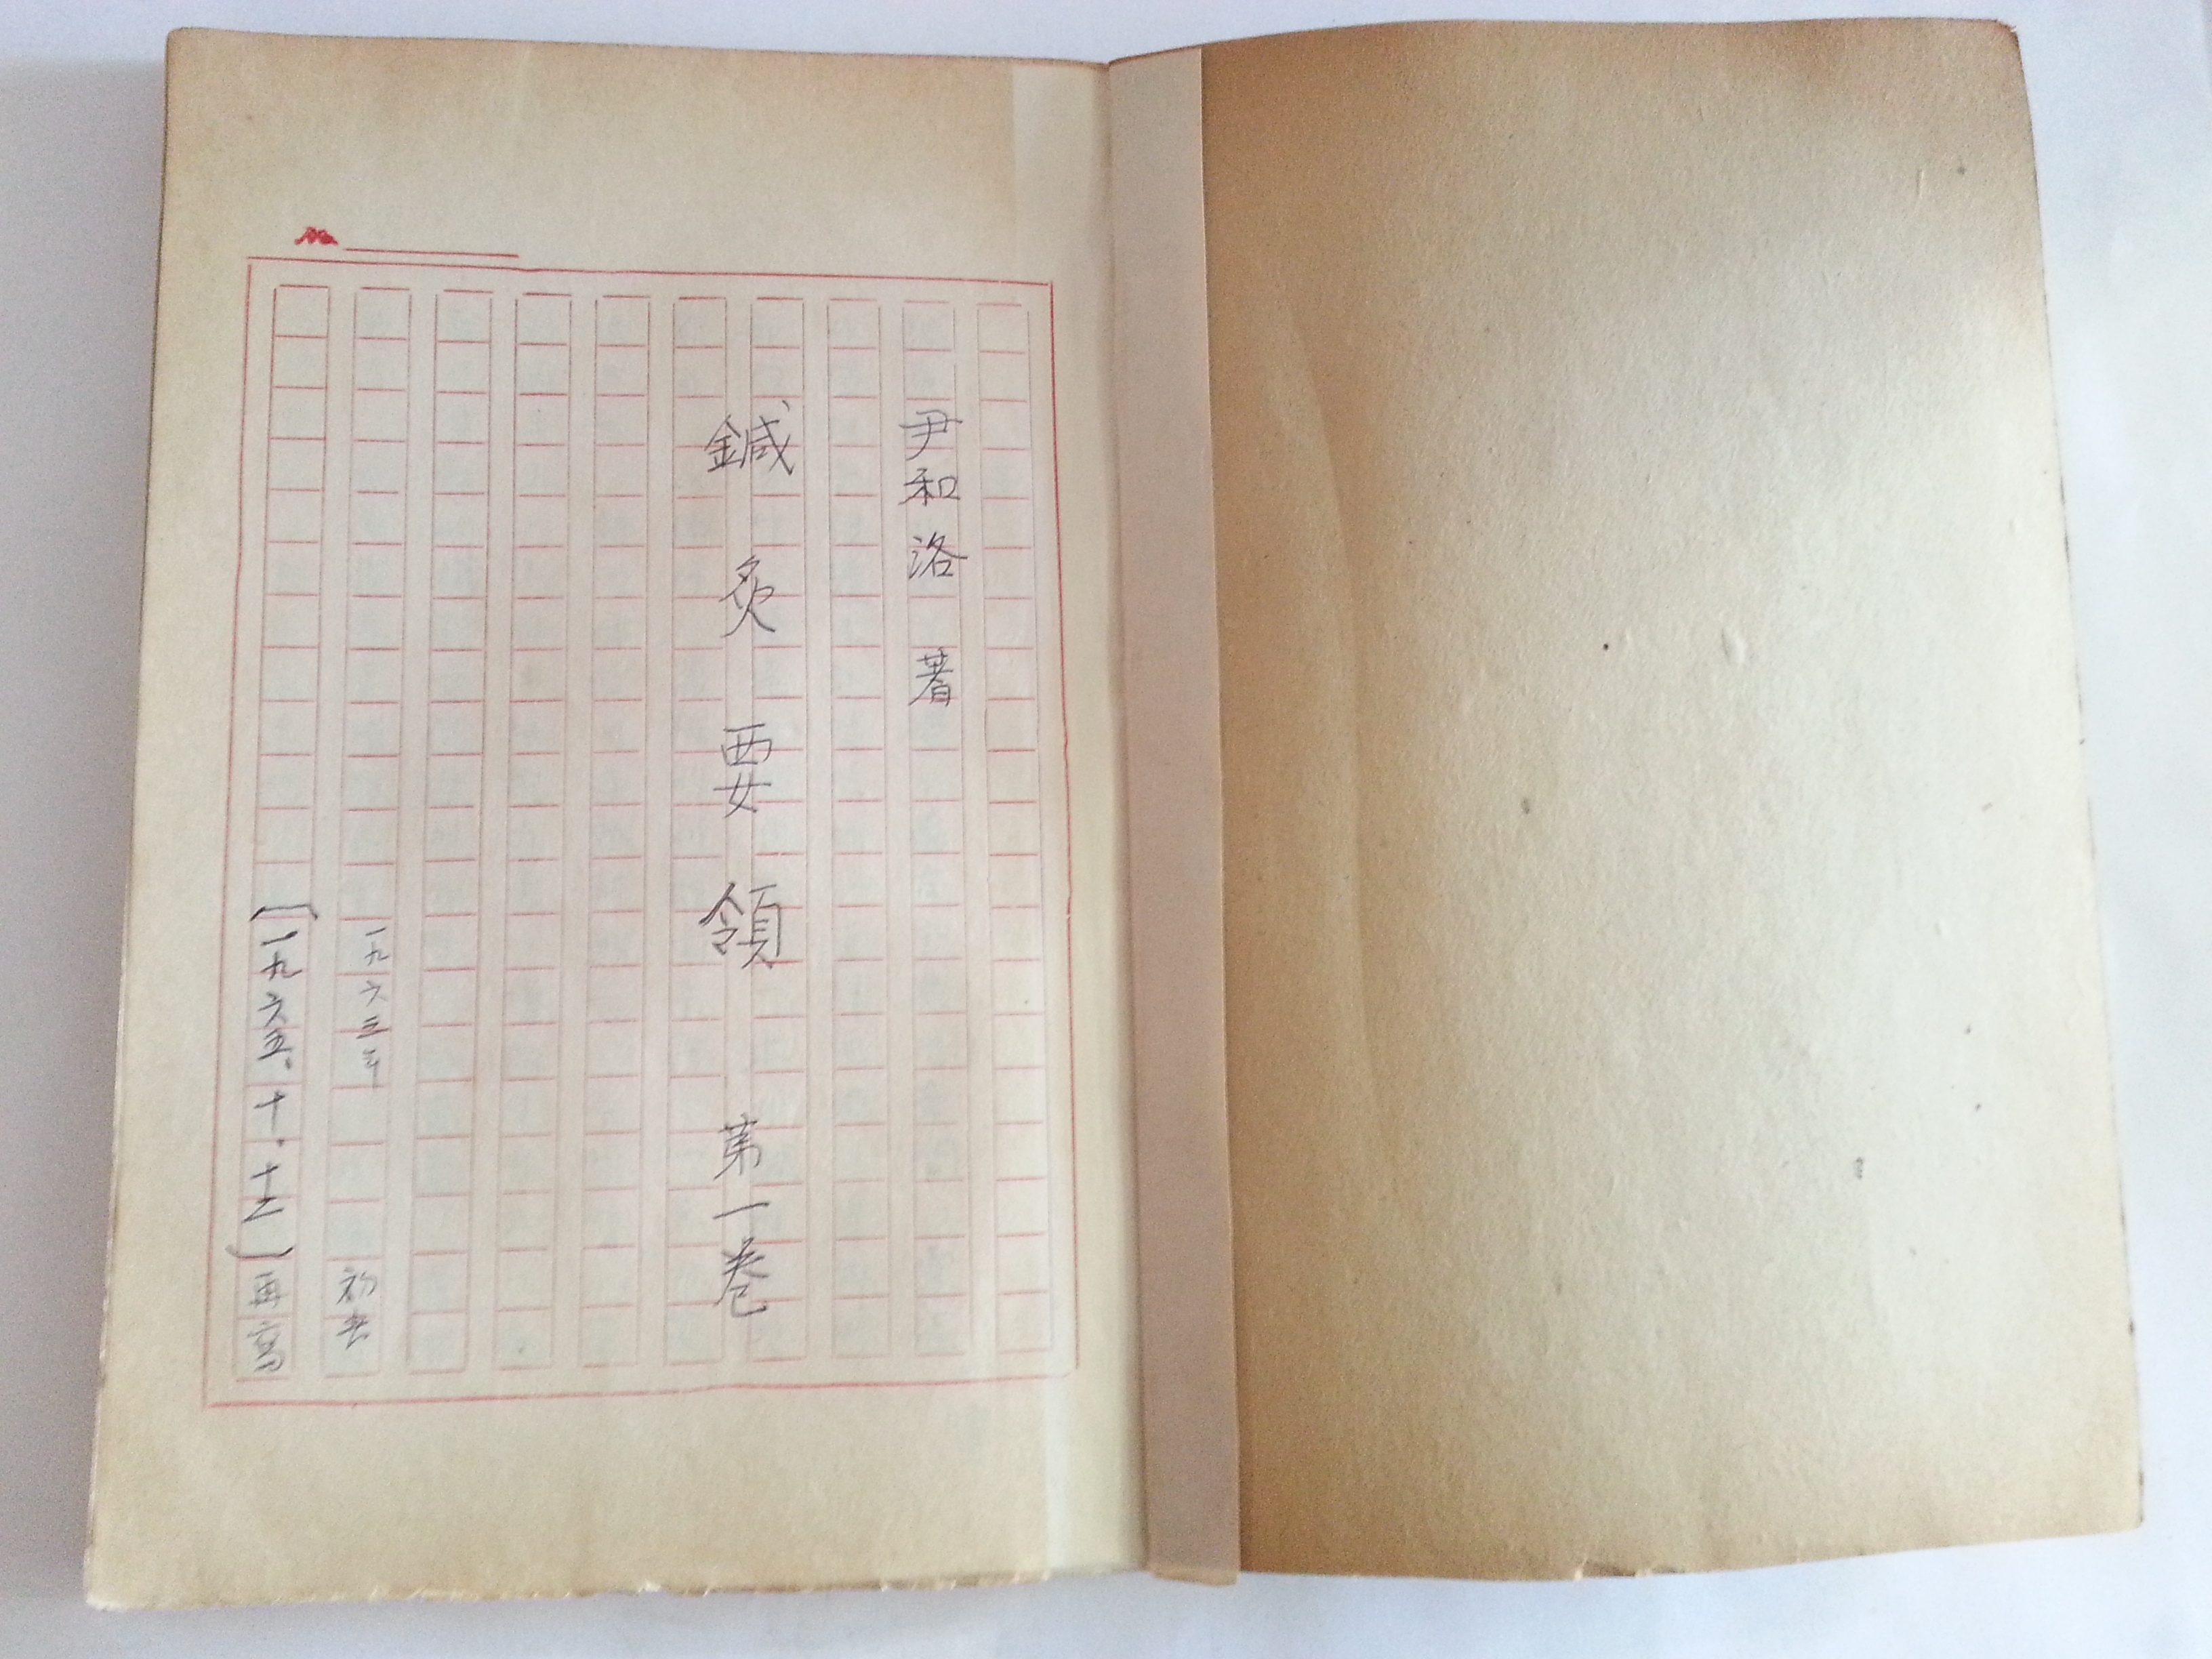 尹和洛 著
鍼灸要領 第一卷
一九六三年 初
(一九六五.十.十二) 再稿